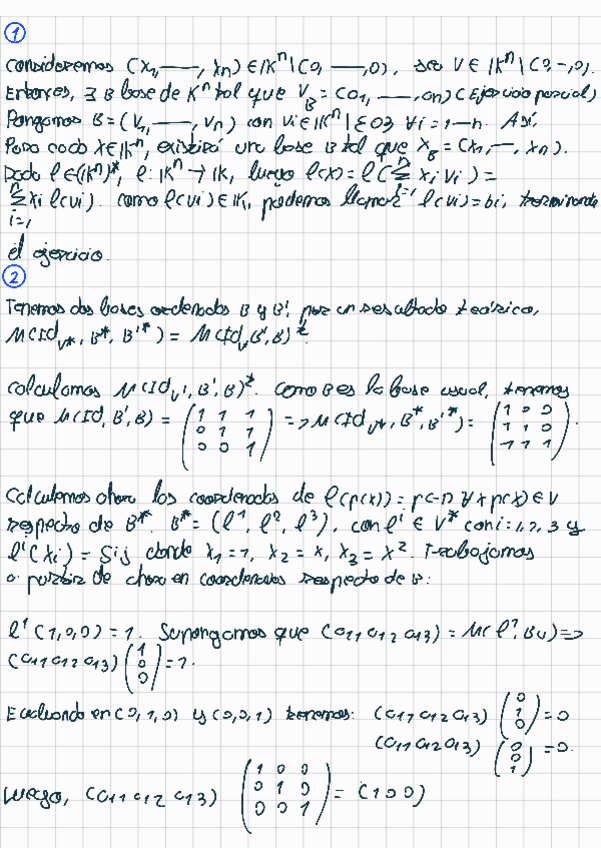 1
consideremos (x1, —, xn) ∈ IK^n \ (0, —, 0), sea v ∈ IK^n \ (0, -, 0).
Entonces, ∃ B base de K^n tal que v_B = (a1, —, an) (Ejercicio parcial)
Pongamos B = (v1, —, vn) con vi ∈ IK^n \ {0} ∀i = 1—n. Así,
Para cada x ∈ IK^n, existirá un base B tal que x_B = (x1, —, xn).
Dado ℓ ∈ (IK^n)*, ℓ: IK^n → IK, luego ℓ(x) = ℓ(∑_{i=1}^n xi vi) =
∑_{i=1}^n xi ℓ(vi). como ℓ(vi) ∈ IK, podemos llamar ℓ(vi) = bi, terminando
el ejercicio.
2
Tenemos dos bases ordenadas B y B', por un resultado teórico,
M(Id_{V*}, B*, B'*) = M(Id_V, B', B)^t.
calculamos M(Id_V, B', B)^t. como B es la base usual, tenemos
que M(Id, B', B) = (1 1 1 / 0 1 1 / 0 0 1) => M(Id_{V*}, B*, B'*) = (1 0 0 / 1 1 0 / 1 1 1).
Calculemos ahora las coordenadas de ℓ(p(x)) = p(-1) ∀ p(x) ∈ V
respecto de B*. B* = (ℓ^1, ℓ^2, ℓ^3), con ℓ^i ∈ V* con i = 1, 2, 3 y
ℓ^i(xj) = δij donde x1 = 1, x2 = x, x3 = x^2. Trabajamos
a partir de ahora en coordenadas respecto de B:
ℓ^1(1,0,0) = 1. Supongamos que (a11 a12 a13) = M(ℓ^1, Bu) =>
(a11 a12 a13) (1 / 0 / 0) = 1.
Evaluando en (0, 1, 0) y (0, 0, 1) tenemos: (a11 a12 a13) (0 / 1 / 0) = 0
(a11 a12 a13) (0 / 0 / 1) = 0.
Luego, (a11 a12 a13) (1 0 0 / 0 1 0 / 0 0 1) = (1 0 0)